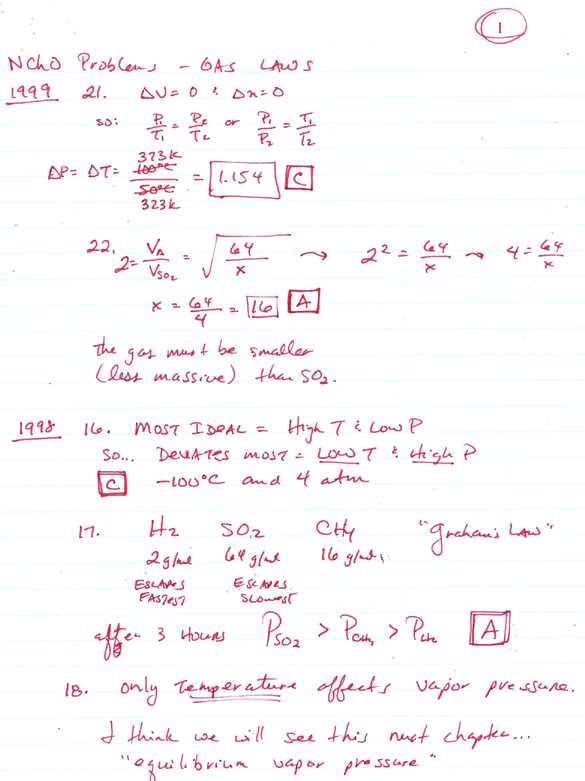 1
NChO Problems - GAS LAWS
1999 21. ΔV = 0 & Δn = 0
so: P₁/T₁ = P₂/T₂ or P₁/P₂ = T₁/T₂
ΔP = ΔT = 373K / 323K = 1.154 C
100°C
50°C
22. 2 = V_A/V_SO₂ = √(64/x) → 2² = 64/x → 4 = 64/x
x = 64/4 = 16 A
the gas must be smaller
(less massive) than SO₂.
1998 16. MOST IDEAL = High T & Low P
SO... DEVIATES MOST = LOW T & High P
C -100°C and 4 atm
17. H₂ SO₂ CH₄ "Graham's LAW"
2 g/mol 64 g/mol 16 g/mol
ESCAPES ESCAPES
FASTEST SLOWEST
after 3 HOURS P_SO₂ > P_CH₄ > P_H₂ A
18. only Temperature affects vapor pressure.
I think we will see this next chapter...
"equilibrium vapor pressure"